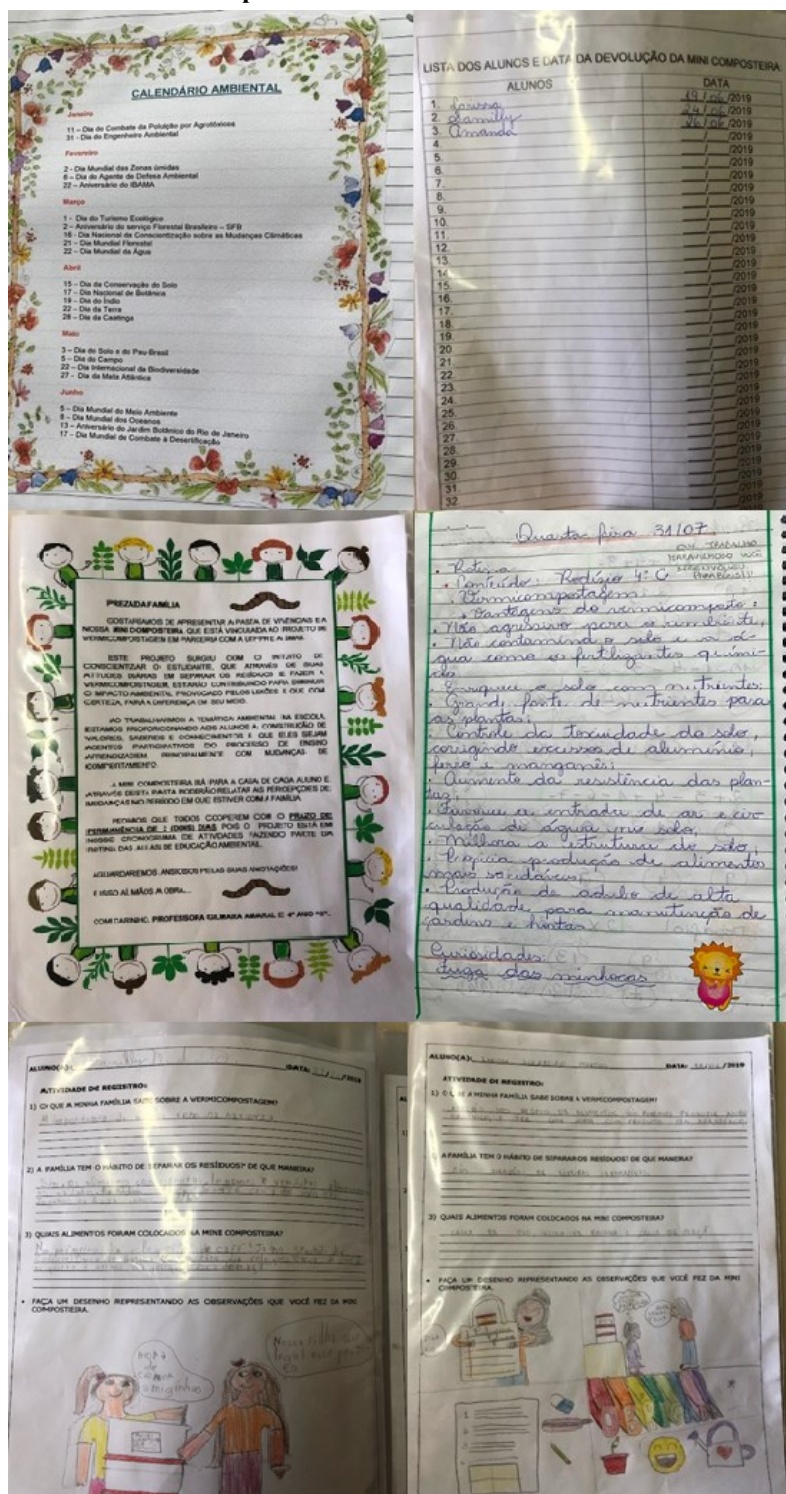 CALENDÁRIO AMBIENTAL
Janeiro
11 – Dia do Combate da Poluição por Agrotóxicos
31 - Dia do Engenheiro Ambiental
Fevereiro
2 - Dia Mundial das Zonas úmidas
6 – Dia do Agente de Defesa Ambiental
22 – Aniversário do IBAMA
Março
1 - Dia do Turismo Ecológico
2 – Aniversário do serviço Florestal Brasileiro – SFB
16 - Dia Nacional da Conscientização sobre as Mudanças Climáticas
21 – Dia Mundial Florestal
22 – Dia Mundial da Água
Abril
15 – Dia da Conservação do Solo
17 – Dia Nacional de Botânica
19 – Dia do Índio
22 – Dia da Terra
28 – Dia da Caatinga
Maio
3 – Dia do Solo e do Pau-Brasil
5 – Dia do Campo
22 – Dia Internacional da Biodiversidade
27 - Dia da Mata Atlântica
Junho
5 – Dia Mundial do Meio Ambiente
8 – Dia Mundial dos Oceanos
13 – Aniversário do Jardim Botânico do Rio de Janeiro
17 – Dia Mundial de Combate à Desertificação
LISTA DOS ALUNOS E DATA DA DEVOLUÇÃO DA MINI COMPOSTEIRA:
ALUNOS DATA
1. Larissa 19/06/2019
2. Kamilly 24/06/2019
3. Amanda 26/06/2019
4. /2019
5. /2019
6. /2019
7. /2019
8. /2019
9. /2019
10. /2019
11. /2019
12. /2019
13. /2019
14. /2019
15. /2019
16. /2019
17. /2019
18. /2019
19. /2019
20. /2019
21. /2019
22. /2019
23. /2019
24. /2019
25. /2019
26. /2019
27. /2019
28. /2019
29. /2019
30. /2019
31. /2019
32. /2019
PREZADA FAMÍLIA
GOSTARÍAMOS DE APRESENTAR A PASTA DE VIVÊNCIAS E A
NOSSA MINI COMPOSTEIRA QUE ESTÁ VINCULADA AO PROJETO DE
VERMICOMPOSTAGEM EM PARCERIA COM A
ESTE PROJETO SURGIU COM O INTUITO DE
CONSCIENTIZAR O ESTUDANTE, QUE ATRAVÉS DE SUAS
ATITUDES DIÁRIAS EM SEPARAR OS RESÍDUOS E FAZER A
VERMICOMPOSTAGEM, ESTARÃO CONTRIBUINDO PARA DIMINUIR
O IMPACTO AMBIENTAL PROVOCADO PELOS LIXÕES E QUE COM
CERTEZA, FARÁ A DIFERENÇA EM SEU MEIO.
AO TRABALHARMOS A TEMÁTICA AMBIENTAL NA ESCOLA,
ESTAMOS PROPORCIONANDO AOS ALUNOS A CONSTRUÇÃO DE
VALORES, SABERES E CONHECIMENTOS E QUE ELES SEJAM
AGENTES PARTICIPATIVOS DO PROCESSO DE ENSINO
APRENDIZAGEM PRINCIPALMENTE COM MUDANÇAS DE
COMPORTAMENTO.
A MINI COMPOSTEIRA IRÁ PARA A CASA DE CADA ALUNO E
ATRAVÉS DESTA PASTA PODERÃO RELATAR AS PERCEPÇÕES DE
MUDANÇAS NO PERÍODO EM QUE ESTIVER COM A FAMÍLIA.
PEDIMOS QUE TODOS COOPEREM COM O PRAZO DE
PERMANÊNCIA DE 2 (DOIS) DIAS POIS O PROJETO ESTÁ EM
NOSSO CRONOGRAMA DE ATIVIDADES FAZENDO PARTE DA
ROTINA DAS AULAS DE EDUCAÇÃO AMBIENTAL.
AGUARDAREMOS ANSIOSOS PELAS SUAS ANOTAÇÕES!
E ISSO AÍ, MÃOS A OBRA...
COM CARINHO, PROFESSORA GILMARA AMARAL E 4º ANO
Quarta feira 31/07
Rotina
Conteúdo: Rodízio 4º C
Vermicompostagem
Vantagens do vermicomposto:
Não agressivo para o ambiente,
Não contamina o solo e a á-
gua como os fertilizantes quími-
cos
Enriquece o solo com nutrientes;
Grande fonte de nutrientes para
as plantas;
Controle da toxicidade do solo,
corrigindo excessos de alumínio,
ferro e manganês;
Aumento da resistência das plan-
tas;
Favorece a entrada de ar e cir-
culação de água no solo;
Melhora a estrutura do solo;
Propicia produção de alimentos
mais saudáveis;
Produção de adubo de alta
qualidade para manutenção de
jardins e hortas
Curiosidades:
fuga das minhocas
ALUNO(A): DATA: /2019
ATIVIDADE DE REGISTRO:
1) O QUE A MINHA FAMÍLIA SABE SOBRE A VERMICOMPOSTAGEM?
2) A FAMÍLIA TEM O HÁBITO DE SEPARAR OS RESÍDUOS? DE QUE MANEIRA?
3) QUAIS ALIMENTOS FORAM COLOCADOS NA MINI COMPOSTEIRA?
FAÇA UM DESENHO REPRESENTANDO AS OBSERVAÇÕES QUE VOCÊ FEZ DA MINI
COMPOSTEIRA.
HORA
de
comer
amiguinhos
Nossa filha que
legal esse proje
ALUNO(A): DATA: /2019
ATIVIDADE DE REGISTRO:
1) O QUE A MINHA FAMÍLIA SABE SOBRE A VERMICOMPOSTAGEM?
2) A FAMÍLIA TEM O HÁBITO DE SEPARAR OS RESÍDUOS? DE QUE MANEIRA?
3) QUAIS ALIMENTOS FORAM COLOCADOS NA MINI COMPOSTEIRA?
FAÇA UM DESENHO REPRESENTANDO AS OBSERVAÇÕES QUE VOCÊ FEZ DA MINI
COMPOSTEIRA.